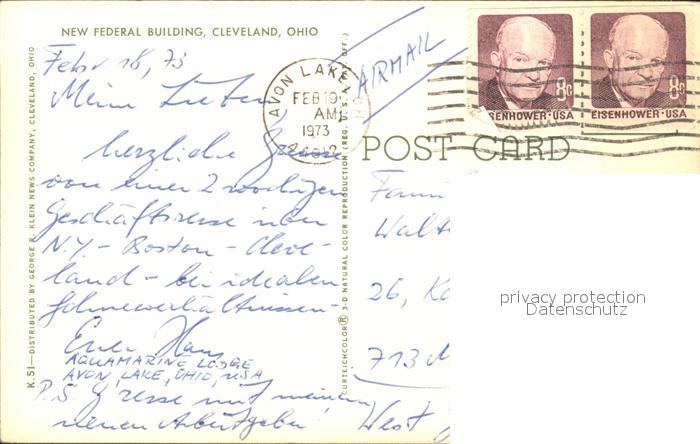 NEW FEDERAL BUILDING, CLEVELAND, OHIO
Febr 18, 73
Meine Lieben,
herzliche Grüsse
von einer 2 wochigen
Geschäftsreise über
N.Y. - Boston - Cleve-
land - bei idealen
Schneeverhältnissen -
Euer Hans
AQUAMARINE LODGE
AVON LAKE, OHIO, USA
P.S. Grüsse mit meinem
neuen Arbeitgeber
K.51—DISTRIBUTED BY GEORGE R. KLEIN NEWS COMPANY, CLEVELAND, OHIO
CURTEICHCOLOR® 3-D NATURAL COLOR REPRODUCTION (REG. U.S.A. PAT. OFF.)
AIRMAIL
AVON LAKE
FEB 19
AM
1973
44012
8c
EISENHOWER·USA
8c
EISENHOWER·USA
POST CARD
Fami
Walt
26, Ko
713
West
privacy protection
Datenschutz